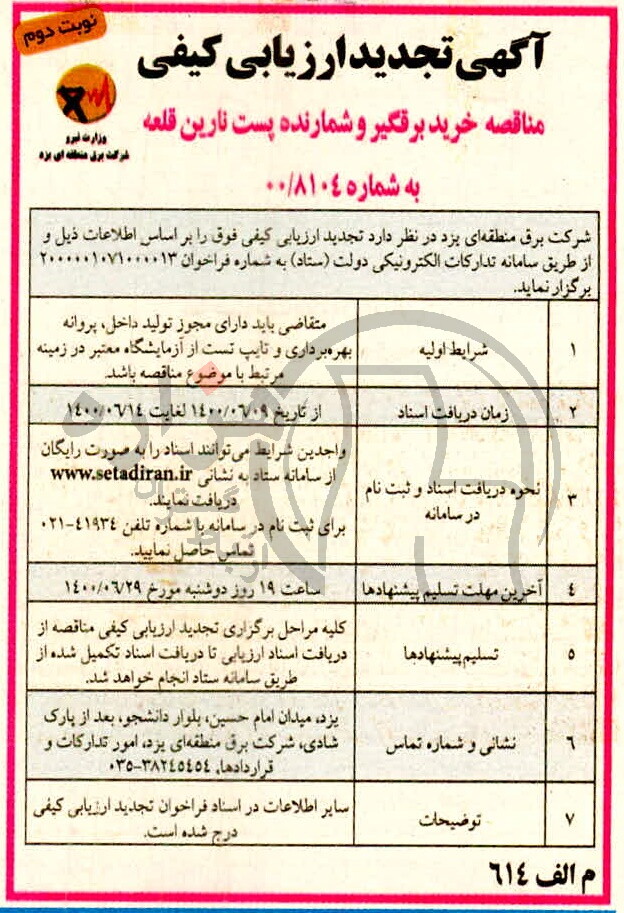 نوبت دوم
آگهی تجدید ارزیابی کیفی
مناقصه خرید برقگیر و شمارنده پست نارین قلعه
به شماره ۰۰/۸۱۰۴
وزارت نیرو
شرکت برق منطقه ای یزد
شرکت برق منطقه‌ای یزد در نظر دارد تجدید ارزیابی کیفی فوق را بر اساس اطلاعات ذیل و
از طریق سامانه تدارکات الکترونیکی دولت (ستاد) به شماره فراخوان ۲۰۰۰۰۰۱۰۷۱۰۰۰۰۱۳
برگزار نماید.
۱
شرایط اولیه
متقاضی باید دارای مجوز تولید داخل، پروانه
بهره‌برداری و تایپ تست از آزمایشگاه معتبر در زمینه
مرتبط با موضوع مناقصه باشد.
۲
زمان دریافت اسناد
از تاریخ ۱۴۰۰/۰۶/۰۹ لغایت ۱۴۰۰/۰۶/۱۴
۳
نحوه دریافت اسناد و ثبت نام
در سامانه
واجدین شرایط می‌توانند اسناد را به صورت رایگان
از سامانه ستاد به نشانی www.setadiran.ir
دریافت نمایند.
برای ثبت نام در سامانه با شماره تلفن ۴۱۹۳۴-۰۲۱
تماس حاصل نمایید.
۴
آخرین مهلت تسلیم پیشنهادها
ساعت ۱۹ روز دوشنبه مورخ ۱۴۰۰/۰۶/۲۹
۵
تسلیم پیشنهادها
کلیه مراحل برگزاری تجدید ارزیابی کیفی مناقصه از
دریافت اسناد ارزیابی تا دریافت اسناد تکمیل شده از
طریق سامانه ستاد انجام خواهد شد.
۶
نشانی و شماره تماس
یزد، میدان امام حسین، بلوار دانشجو، بعد از پارک
شادی، شرکت برق منطقه‌ای یزد، امور تدارکات و
قراردادها، ۳۸۲۴۵۴۵۴-۰۳۵
۷
توضیحات
سایر اطلاعات در اسناد فراخوان تجدید ارزیابی کیفی
درج شده است.
م الف ۶۱۴